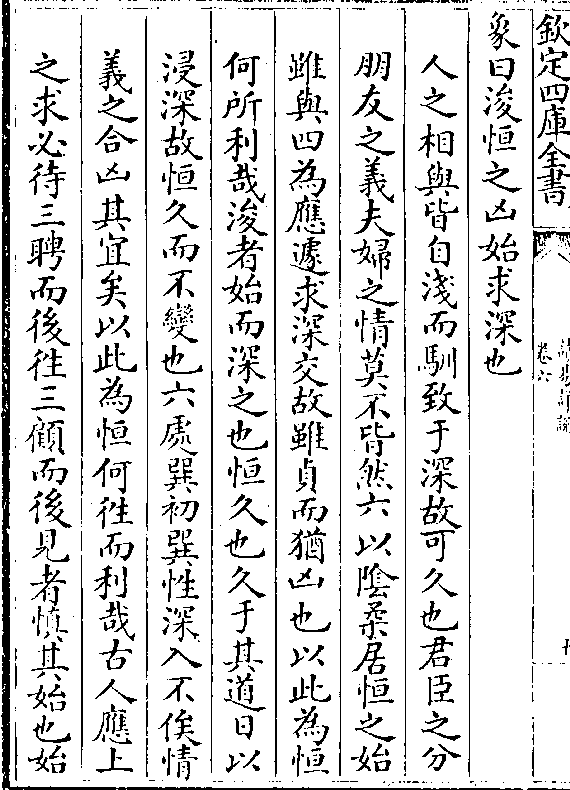 欽定四庫全書
卷六
象曰浚恒之凶始求深也
人之相與皆自淺而馴致于深故可久也君臣之分
朋友之義夫婦之情莫不皆然六以隂柔居恒之始
雖與四為應遽求深交故雖貞而猶凶也以此為恒
何所利哉浚者始而深之也恒久也久于其道日以
浸深故恒久而不變也六處巽初巽性深入不俟情
義之合凶其宜矣以此為恒何徃而利哉古人應上
之求必待三聘而後徃三顧而後見者慎其始也始